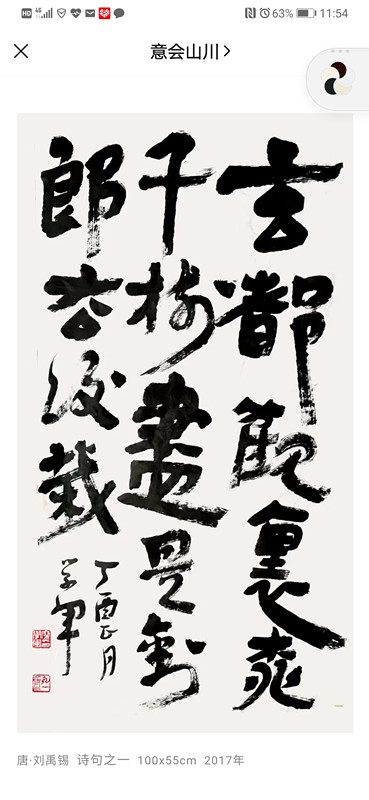 HD 46 63% 11:54
意会山川
玄都觀裏桃
千樹盡是劉
郎去後栽
丁酉正月
唐·刘禹锡 诗句之一 100x55cm 2017年